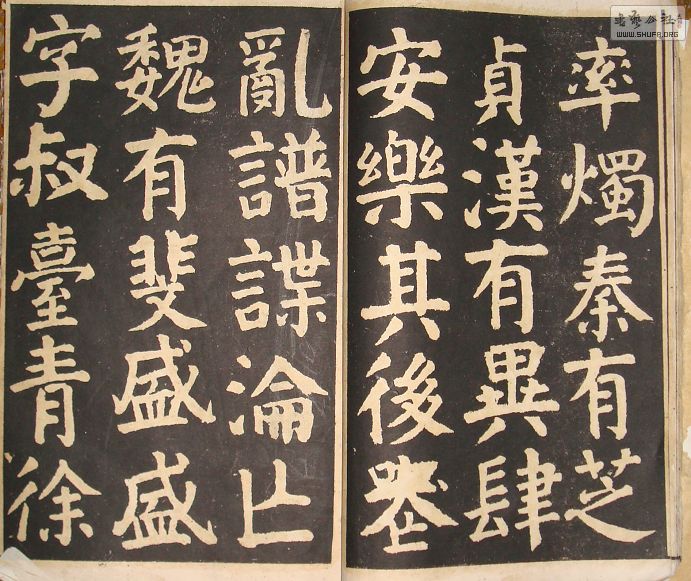 率燭秦有芝
貞漢有異肆
安樂其後喪
亂譜諜淪亡
魏有斐盛盛
字叔臺青徐
书艺公社
WWW.SHUFA.ORG